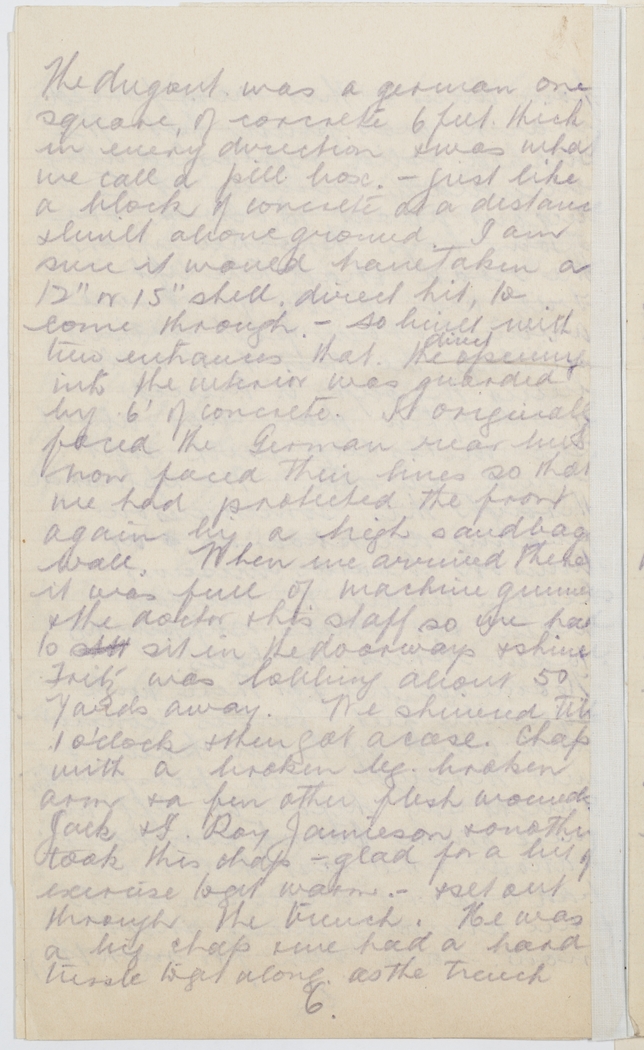 The dugout was a german one
square, of concrete 6 feet thick
in every direction & was wha
we call a pill box. - just like
a block of concrete at a distanc
& built above ground. I am
sure it would have taken a
12" or 15" shell, direct hit, to
come through. - so built with
two entrances that the direct opening
into the interior was guarded
by 6' of concrete. It originall
faced the German rear but
now faced their lines so tha
we had protected the front
again by a high sandbag
wall. When we arrived there
it was full of machine gunne
& the doctor & his staff so we ha
to sit in the doorways & shive
Fritz was lobbing about 50
yards away. We shivered till
1 o'clock & then got a case. Chap
with a broken leg, broken
arm & a few other flesh wounds
Jack & I, Roy Jamieson & anothe
took this chap - glad for a bit of
exercise to get warm. - & set out
through the trench. He was
a big chap & we had a hard
tussle to get along as the trench
6.